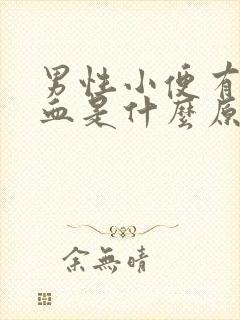 男性小便有
血是什麼原
余無晴